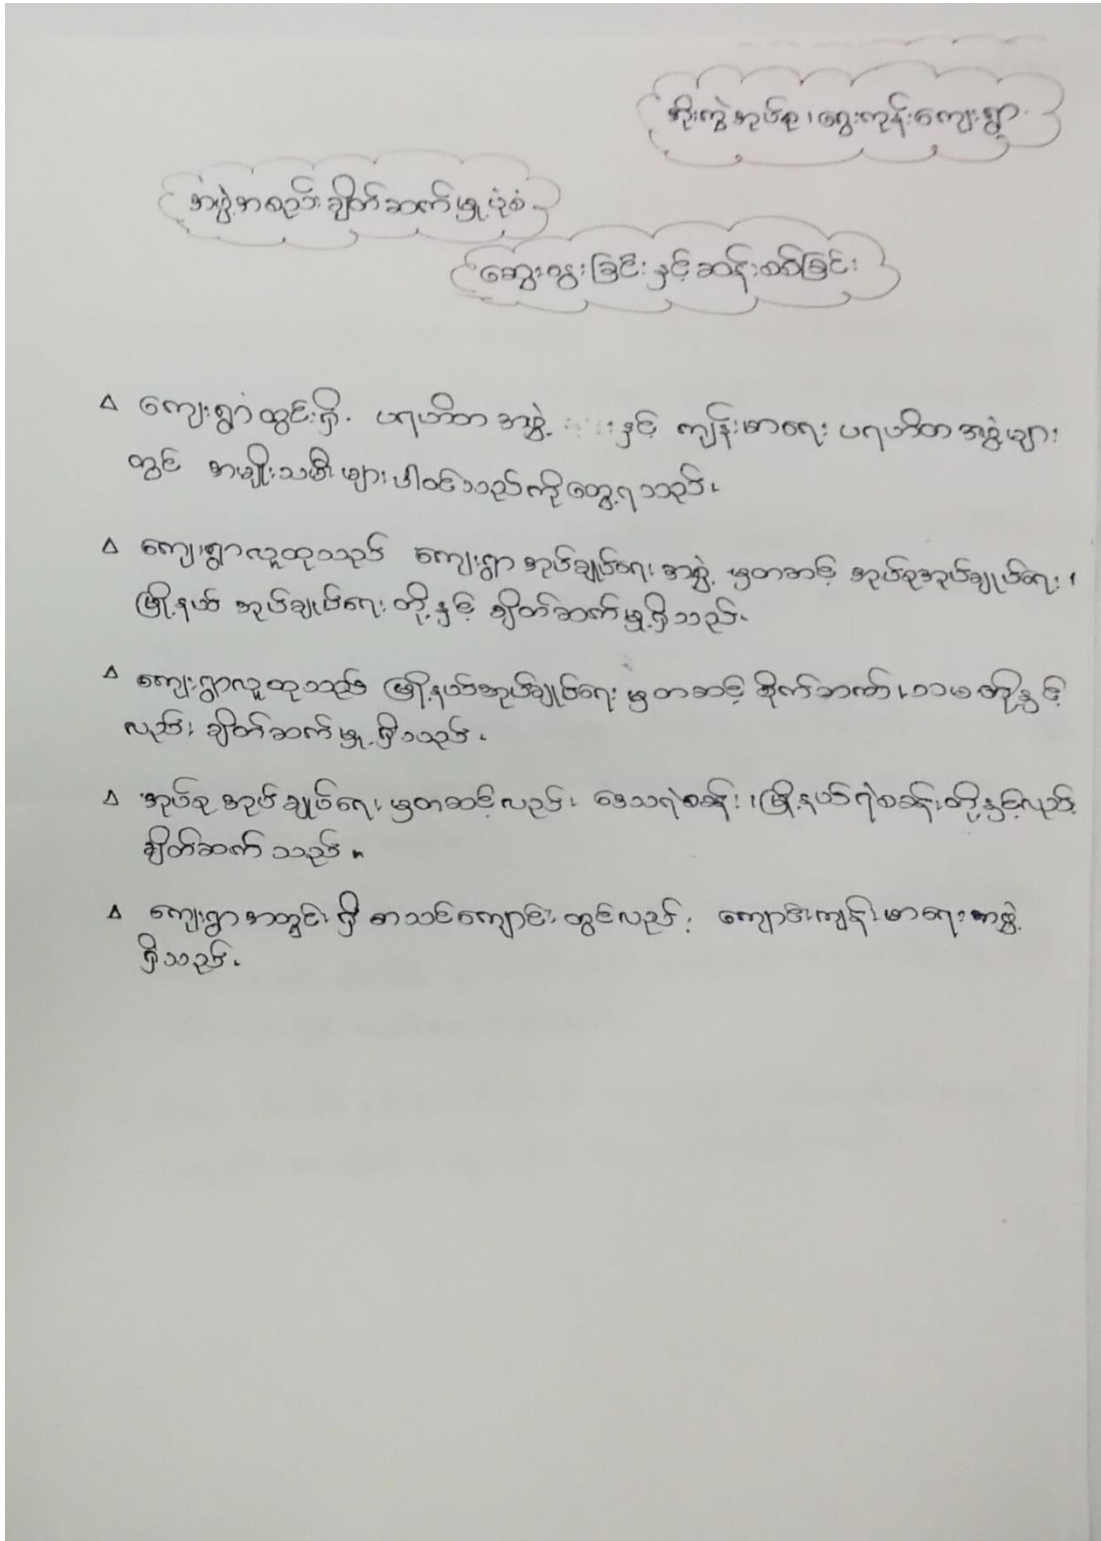 အိုးကွဲအုပ်စု၊ ရွှေးကုန်းကျေးရွာ
အဖွဲ့အစည်း ချိတ်ဆက်မှု ပုံစံ
ဆွေးနွေးခြင်း နှင့် ဆန်းစစ်ခြင်း
ကျေးရွာတွင်းရှိ ပရဟိတ အဖွဲ့ နှင့် ကျန်းမာရေး ပရဟိတ အဖွဲ့များ
တွင် အမျိုးသမီး များ ပါဝင်သည်ကို တွေ့ရသည်။
ကျေးရွာလူထုသည် ကျေးရွာ အုပ်ချုပ်ရေး အဖွဲ့ မှတဆင့် အုပ်စုအုပ်ချုပ်ရေး ၊
မြို့နယ် အုပ်ချုပ်ရေး တို့ နှင့် ချိတ်ဆက်မှု ရှိသည်။
ကျေးရွာလူထုသည် မြို့နယ်အုပ်ချုပ်ရေး မှတဆင့် စိုက်ဘဏ် ၊ သမ တို့နှင့်
လည်း ချိတ်ဆက်မှု ရှိသည်။
အုပ်စု အုပ်ချုပ်ရေး မှတဆင့်လည်း ဒေသရဲစခန်း ၊ မြို့နယ်ရဲစခန်းတို့နှင့်လည်း
ချိတ်ဆက် သည်။
ကျေးရွာအတွင်း ရှိ စာသင်ကျောင်း တွင်လည်း ကျောင်းကျန်းမာရေး အဖွဲ့
ရှိသည်။